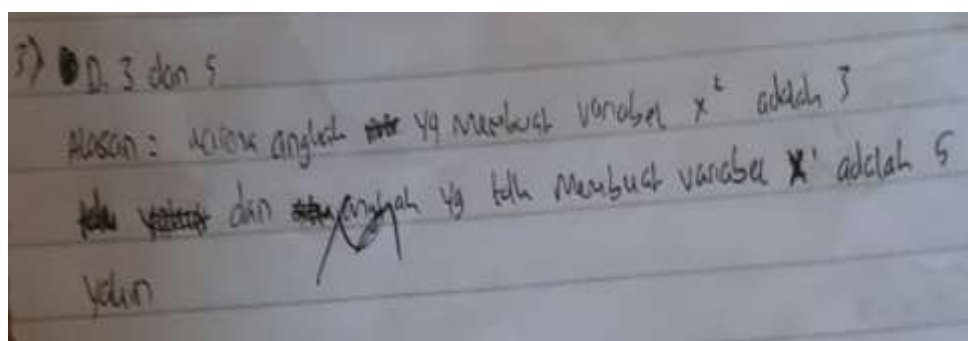 3) D. 3 dan 5
Alasan : karena angkah yg membuat variabel x² adalah 3
dan angkah yg tdk membuat variabel x¹ adalah 5
Yakin